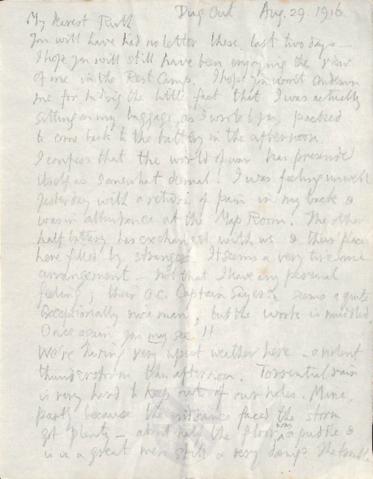 Dug Out Aug. 29. 1916
My dearest Ruth
You will have had no letter these last two days –
I hope you will still have been enjoying the view
of me in the Rest Camp. I hope you won't condemn
me for hiding the little fact that I was actually
sitting on my baggage as I wrote to you, packed
to come back to the battery in the afternoon.
I confess that the world of war has presented
itself as somewhat dismal! I was feeling unwell
yesterday with a return of pain in my back &
was in attendance at the Map Room. The other
half battery has exchanged with us & their place
here filled by strangers. It seems a very tiresome
arrangement – not that I have any personal
feeling; their O.C. Captain seems a quite
exceptionally nice man, but the work is muddled
Once again you my see !!
We're having very wet weather here – a violent
thunderstorm this afternoon. Torrential rain
is very hard to keep out of our holes. Mine,
partly because the entrance faced the storm
got plenty – about half the floor was a puddle &
is in a great mess still & very damp. The trench